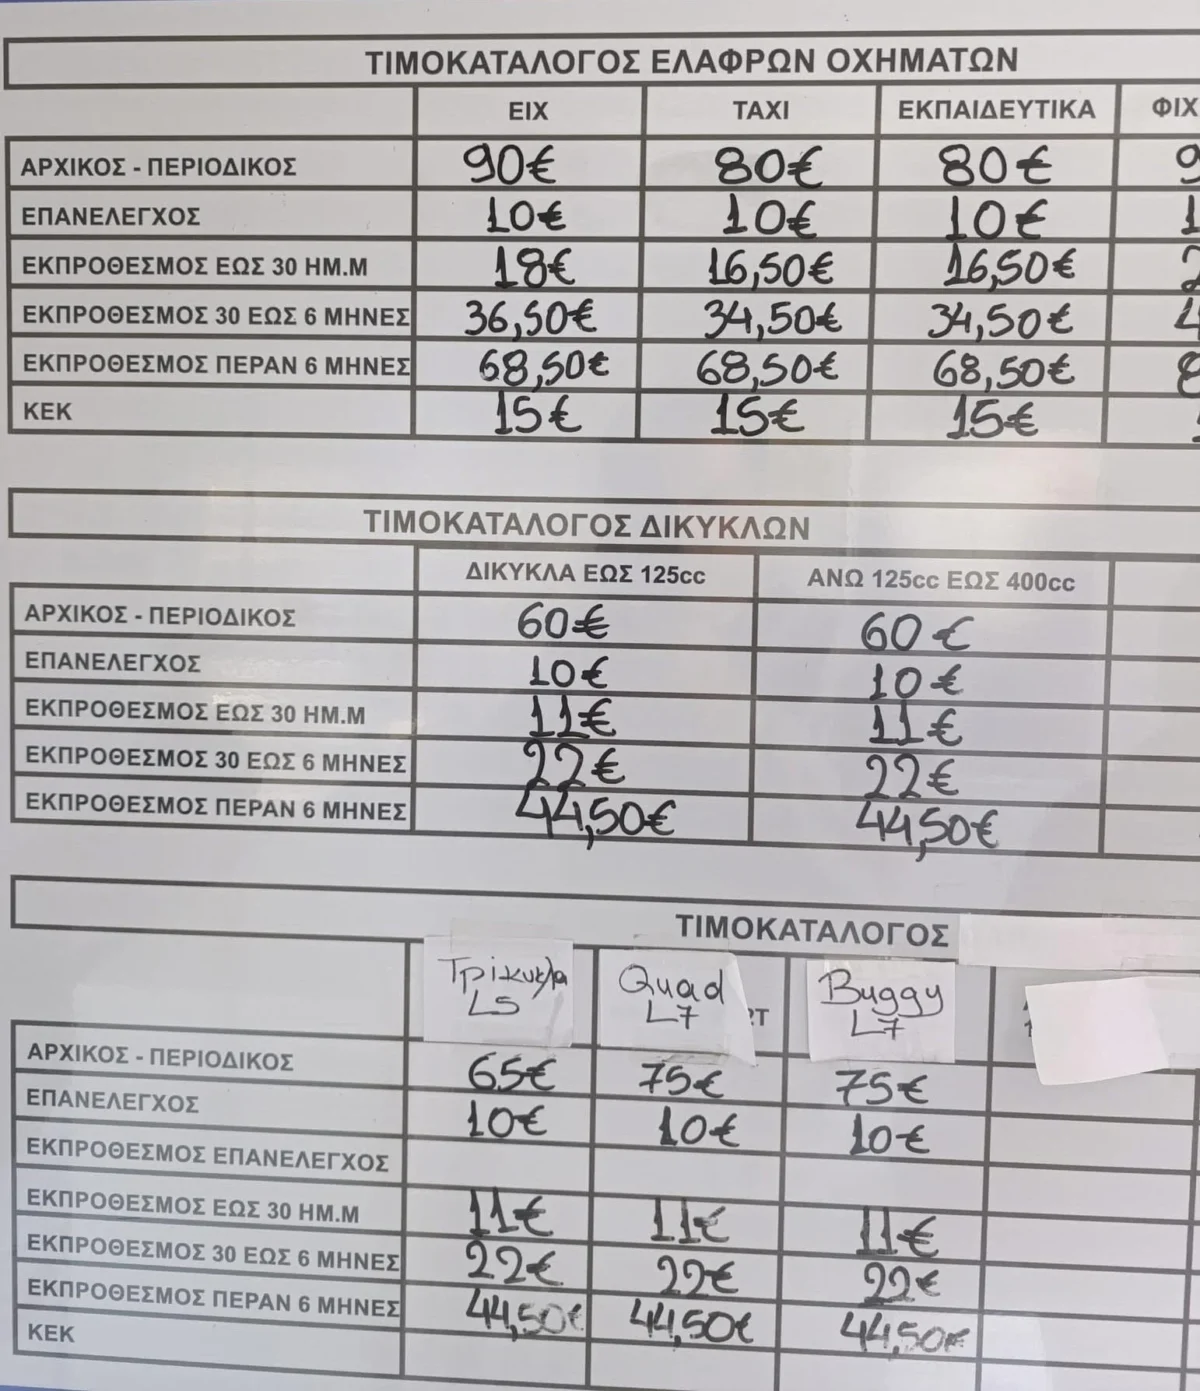 ΤΙΜΟΚΑΤΑΛΟΓΟΣ ΕΛΑΦΡΩΝ ΟΧΗΜΑΤΩΝ
ΕΙΧ ΤΑΧΙ ΕΚΠΑΙΔΕΥΤΙΚΑ ΦΙΧ
ΑΡΧΙΚΟΣ - ΠΕΡΙΟΔΙΚΟΣ 90€ 80€ 80€
ΕΠΑΝΕΛΕΓΧΟΣ 10€ 10€ 10€
ΕΚΠΡΟΘΕΣΜΟΣ ΕΩΣ 30 ΗΜ.Μ 18€ 16,50€ 16,50€
ΕΚΠΡΟΘΕΣΜΟΣ 30 ΕΩΣ 6 ΜΗΝΕΣ 36,50€ 34,50€ 34,50€
ΕΚΠΡΟΘΕΣΜΟΣ ΠΕΡΑΝ 6 ΜΗΝΕΣ 68,50€ 68,50€ 68,50€
ΚΕΚ 15€ 15€ 15€
ΤΙΜΟΚΑΤΑΛΟΓΟΣ ΔΙΚΥΚΛΩΝ
ΔΙΚΥΚΛΑ ΕΩΣ 125cc ΑΝΩ 125cc ΕΩΣ 400cc
ΑΡΧΙΚΟΣ - ΠΕΡΙΟΔΙΚΟΣ 60€ 60€
ΕΠΑΝΕΛΕΓΧΟΣ 10€ 10€
ΕΚΠΡΟΘΕΣΜΟΣ ΕΩΣ 30 ΗΜ.Μ 11€ 11€
ΕΚΠΡΟΘΕΣΜΟΣ 30 ΕΩΣ 6 ΜΗΝΕΣ 22€ 22€
ΕΚΠΡΟΘΕΣΜΟΣ ΠΕΡΑΝ 6 ΜΗΝΕΣ 44,50€ 44,50€
ΤΙΜΟΚΑΤΑΛΟΓΟΣ
Τρίκυκλα Quad Buggy
L5 L7 L7
ΑΡΧΙΚΟΣ - ΠΕΡΙΟΔΙΚΟΣ 65€ 75€ 75€
ΕΠΑΝΕΛΕΓΧΟΣ 10€ 10€ 10€
ΕΚΠΡΟΘΕΣΜΟΣ ΕΠΑΝΕΛΕΓΧΟΣ
ΕΚΠΡΟΘΕΣΜΟΣ ΕΩΣ 30 ΗΜ.Μ 11€ 11€ 11€
ΕΚΠΡΟΘΕΣΜΟΣ 30 ΕΩΣ 6 ΜΗΝΕΣ 22€ 22€ 22€
ΕΚΠΡΟΘΕΣΜΟΣ ΠΕΡΑΝ 6 ΜΗΝΕΣ 44,50€ 44,50€ 44,50€
ΚΕΚ